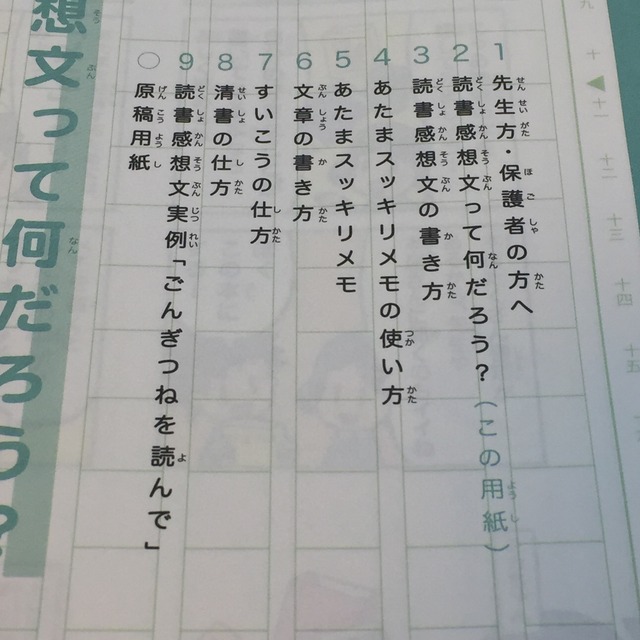 1 先生方・保護者の方へ
2 読書感想文って何だろう?(この用紙)
3 読書感想文の書き方
4 あたまスッキリメモの使い方
5 あたまスッキリメモ
6 文章の書き方
7 すいこうの仕方
8 清書の仕方
9 読書感想文実例「ごんぎつねを読んで」
○ 原稿用紙
想文って何だろう?
十
十一
十二
十三
十四
十五